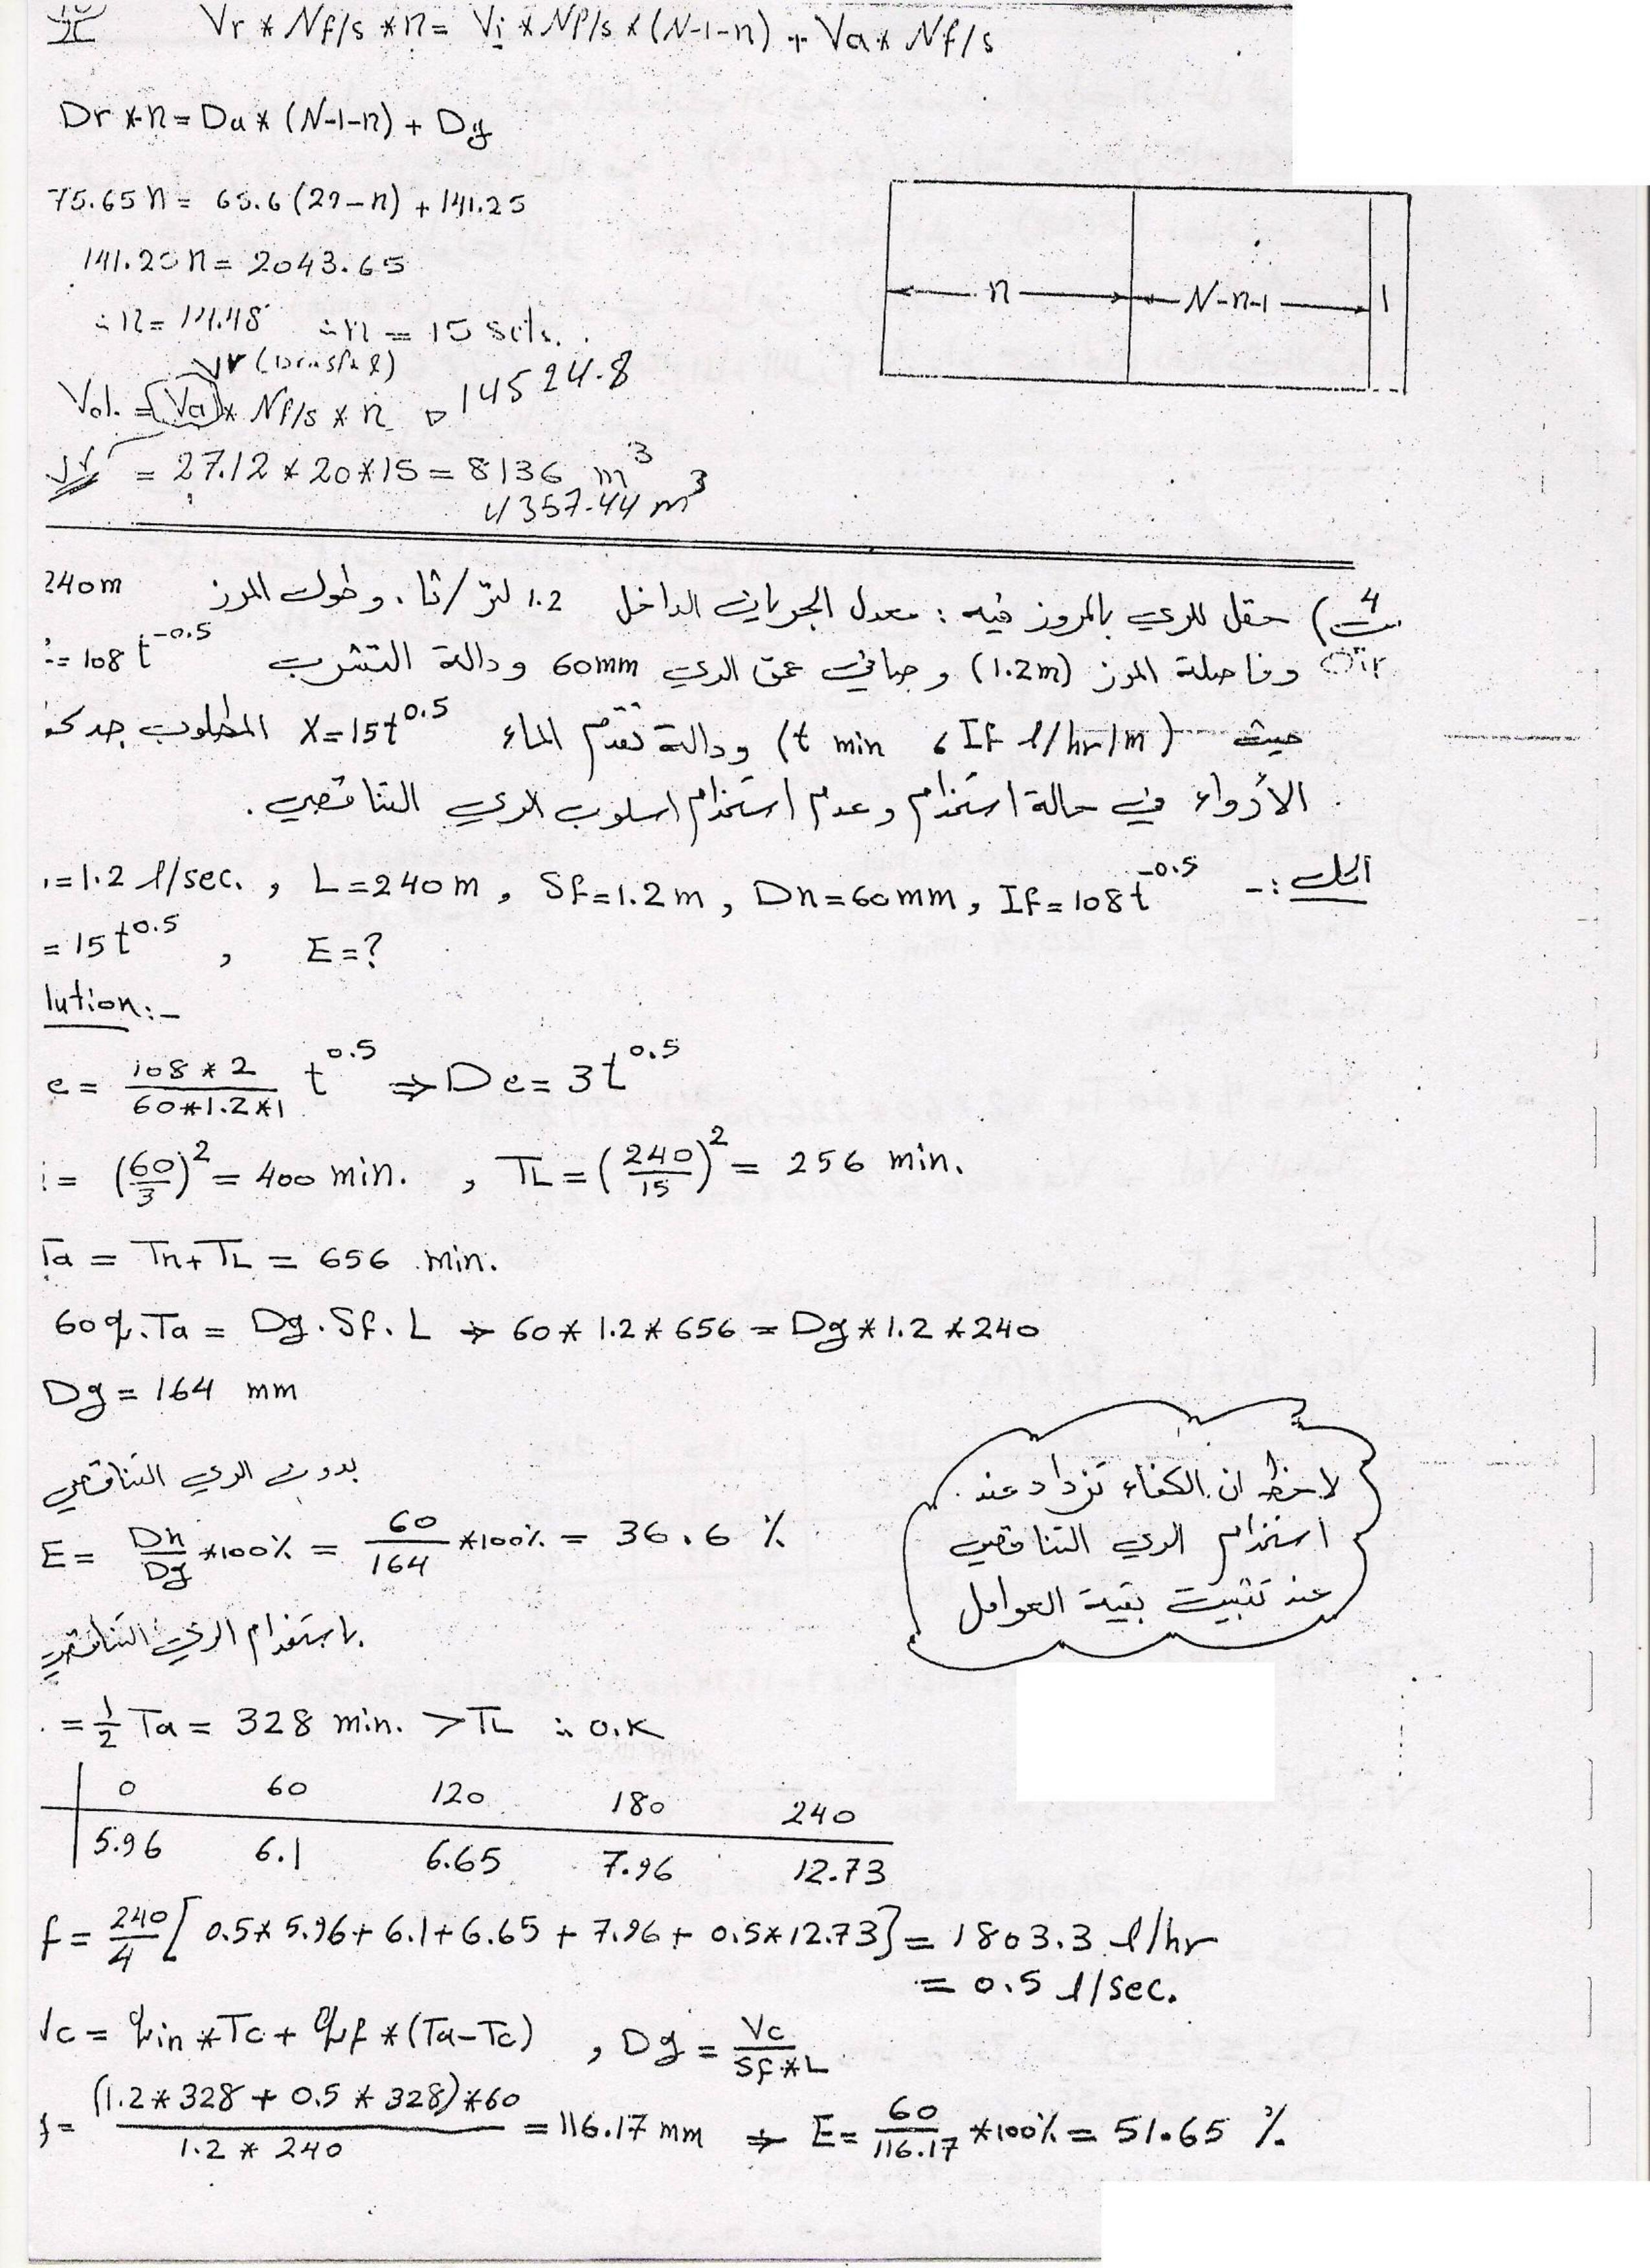 Vr * Nf/s * n = Vi * Nf/s * (N-1-n) + Va * Nf/s
Dr * n = Da * (N-1-n) + Dg
75.65 n = 65.6 (29-n) + 141.25
141.25 n = 2043.65
∴ n = 14.48 ∴ n = 15 sets.
n
N-n-1
1
Vol. = Va * Nf/s * n 14524.8
= 27.12 * 20 * 15 = 8136 m³
4357.44 m³
4) حقل للري بالمروز فيه : معدل الجريان الداخل 1.2 لتر/ثا. وطول المرز 240m
وفاصلة المرز (1.2m) وصافي عمق الري 60mm ودالة التشرب = 108 t^-0.5
حيث (t min ، If l/hr/m) ودالة تقدم الماء X=15t^0.5 المطلوب جد كفاءة
الأرواء في حالة استخدام وعدم استخدام اسلوب الري التناقصي .
الحل :-
= 1.2 l/sec. , L=240m , Sf=1.2m , Dn=60mm , If=108t^-0.5
= 15t^0.5 , E=?
lution:-
e = (108*2)/(60*1.2*1) t^0.5 ⇒ De = 3t^0.5
= (60/3)² = 400 min. , TL = (240/15)² = 256 min.
Ta = Tn + TL = 656 min.
60 q.Ta = Dg.Sf.L → 60 * 1.2 * 656 = Dg * 1.2 * 240
Dg = 164 mm
بدون الري التناقصي
E = Dn/Dg *100% = 60/164 *100% = 36.6 %
لاحظ ان الكفاءة تزداد عند
استخدام الري التناقصي
عند تثبيت بقية العوامل
باستخدام الري التناقصي
= 1/2 Ta = 328 min. > TL ∴ O.K
0 60 120 180 240
5.96 6.1 6.65 7.96 12.73
f = 240/4 [ 0.5*5.96 + 6.1 + 6.65 + 7.96 + 0.5*12.73] = 1803.3 l/hr
= 0.5 l/sec.
Vc = qin * Tc + qf * (Ta-Tc) , Dg = Vc/(Sf*L)
= ((1.2*328 + 0.5*328)*60)/(1.2 * 240) = 116.17 mm → E = 60/116.17 *100% = 51.65 %